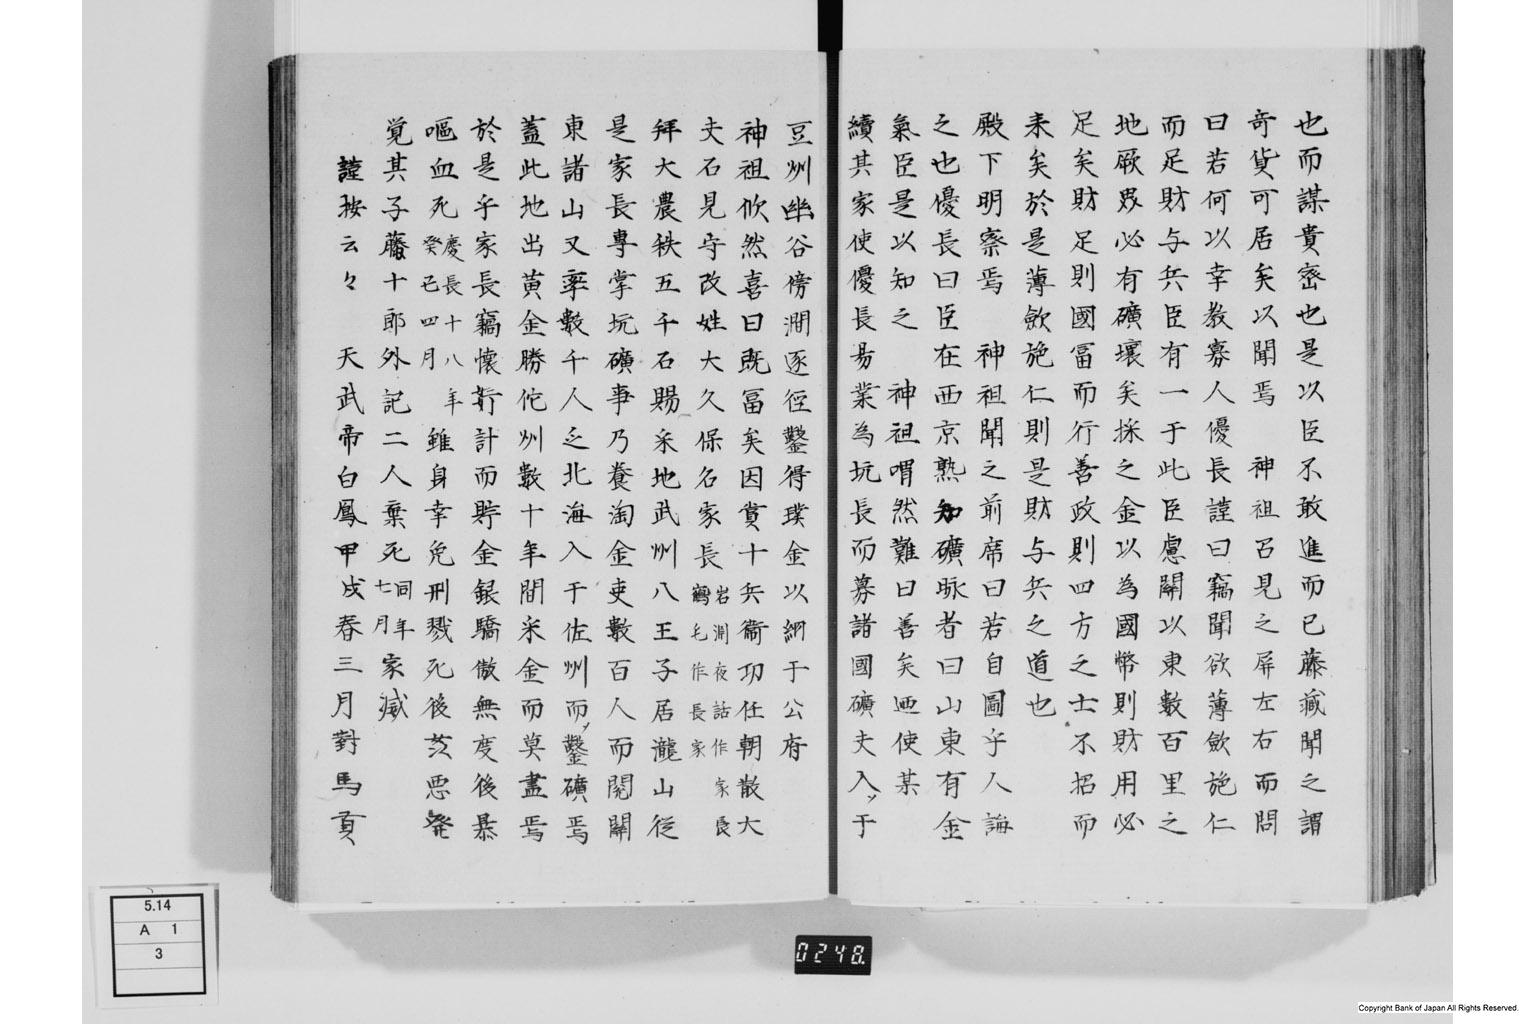 也而謀貴密也是以臣不敢進而已藤蔵聞之謂
奇貨可居矣以聞焉　神祖召見之屏左右而問
曰若何以幸教寡人優長謹曰竊聞欲薄斂施仁
而足財与兵臣有一于此臣慮關以東數百里之
地厥畏必有礦壤矣採之金以為國幣則財用必
足矣財足則國冨而行善政則四方之士不招而
来矣於是薄斂施仁則是財与兵之道也
殿下明察焉　神祖聞之前席曰若自圖乎人誨
之也優長曰臣在西京熟知礦脉者曰山東有金
氣臣是以知之　神祖喟然難曰善矣廼使某
續其家使優長易業為坑長而募諸國礦夫入于
豆州幽谷傍澗逐徑鑿得璞金以納于公府
神祖欣然喜曰既冨矣因賞十兵衞功任朝散大
夫石見守改姓大久保名家長岩淵夜話作家長鶴毛作長家
拜大農秩五千石賜采地武州八王子居瀧山從
是家長專掌坑礦事乃養淘金吏數百人而閲關
東諸山又率數千人之北海入于佐州而鑿礦焉
蓋此地出黄金勝佗州數十年間米金而莫盡焉
於是乎家長竊懷奸計而貯金銀驕傲無度後暴
嘔血死慶長十八年癸已四月雖身幸免刑戮死後茨悪発
覚其子藤十郎外記二人棄死同年七月家滅
謹按云々　天武帝白鳳甲戌春三月對馬貢
5.14
A 1
3
0248.
Copyright Bank of Japan All Rights Reserved.